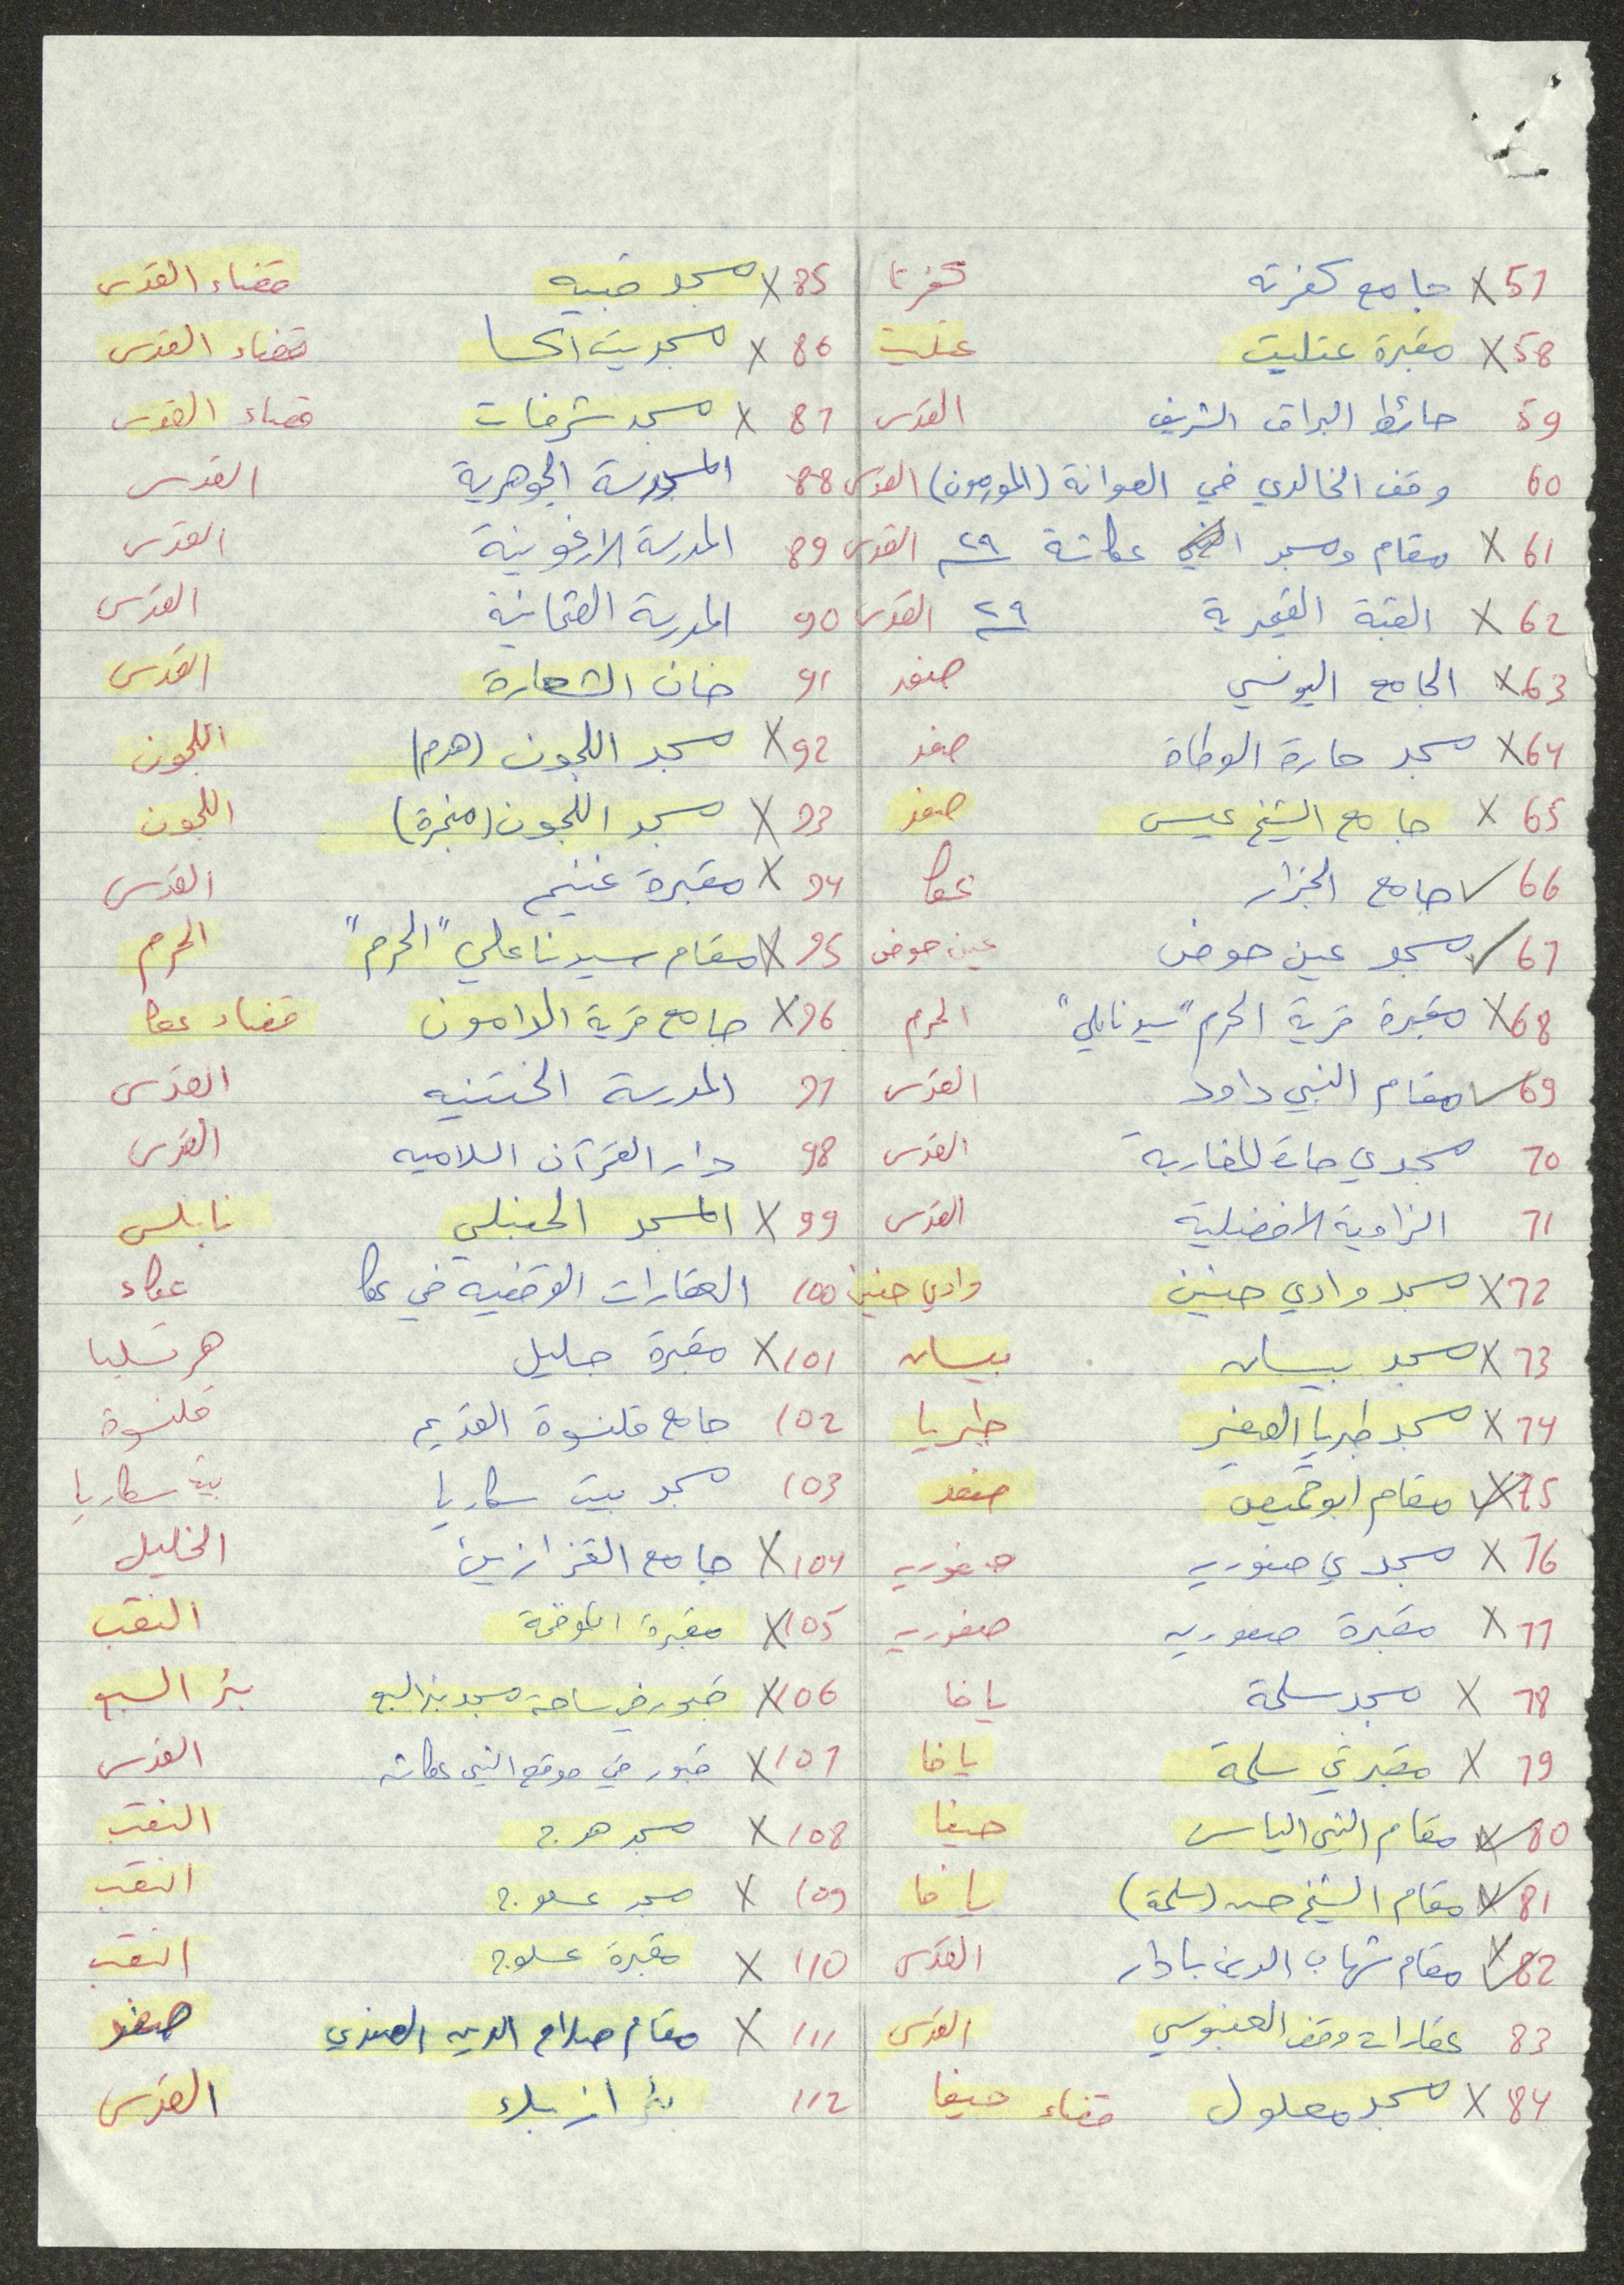 X 57 جامع كفرته كفرتا
X 58 مقبرة عتليت عتليت
59 حائط البراق الشريف القدس
60 وقف الخالدي في الصوانة (المورمون) القدس
X 61 مقام ومسجد عكاشة ٢٩ القدس
X 62 القبة القيمرية ٢٩ القدس
X 63 الجامع اليونسي صفد
X 64 مسجد حارة الوطاة صفد
X 65 جامع الشيخ عيسى صفد
✓ 66 جامع الجزار عكا
✓ 67 مسجد عين حوض عين حوض
X 68 مقبرة قرية الحرم "سيدنا علي" الحرم
✓ 69 مقام النبي داود القدس
70 مسجدي حارة المغاربة القدس
71 الزاوية الافضلية القدس
X 72 مسجد وادي حنين وادي حنين
X 73 مسجد بيسان بيسان
X 74 مسجد طبريا الصغير طبريا
X 75 مقام ابو قميص صفد
X 76 مسجدي صفوريه صفوريه
X 77 مقبرة صفوريه صفوريه
X 78 مسجد سلمة يافا
X 79 مقبرتي سلمة يافا
X 80 مقام النبي الياس حيفا
X 81 مقام الشيخ حسن (سلمة) يافا
X 82 مقام شهاب الدين بادار القدس
83 عقارات وقف العنبوسي القدس
X 84 مسجد معلول قضاء حيفا
X 85 مسجد قبيه قضاء القدس
X 86 مسجد بيت اكسا قضاء القدس
X 87 مسجد شرفات قضاء القدس
88 المدرسة الجوهرية القدس
89 المدرسة الارغونية القدس
90 المدرسة العثمانية القدس
91 خان الشعارة القدس
X 92 مسجد اللجون (هدم) اللجون
X 93 مسجد اللجون (منجرة) اللجون
X 94 مقبرة غنيم القدس
X 95 مقام سيدنا علي "الحرم" الحرم
X 96 جامع قرية الدامون قضاء عكا
97 المدرسة الختنيه القدس
98 دار القرآن السلاميه القدس
X 99 المسجد الحنبلي نابلس
100 العقارات الوقفيه في عكا عكاء
X 101 مقبرة جليل هرتسليا
102 جامع قلنسوة القديم قلنسوة
103 مسجد بيت سكاريا بيت سكاريا
X 104 جامع القزازين الخليل
X 105 مقبرة النقب
X 106 قبور في ساحة مسجد بئر السبع بئر السبع
X 107 قبور في موقع النبي عكاشه القدس
X 108 مسجد هوج النقب
X 109 مسجد عسلوج النقب
X 110 مقبرة عسلوج النقب
X 111 مقام صلاح الدين الصفدي صفد
112 القدس